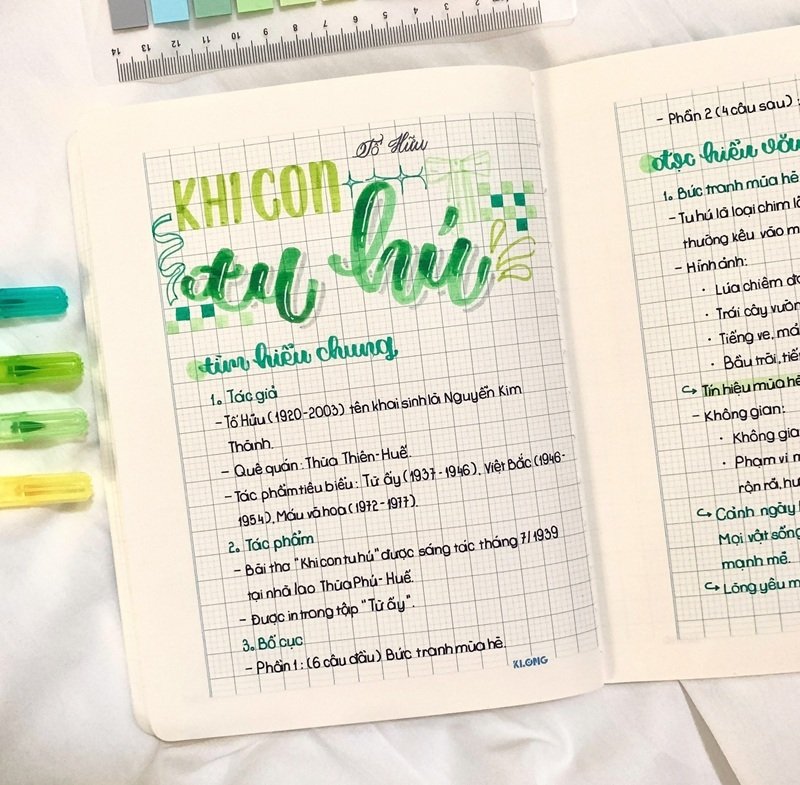 14 13 12 11 10 9 8 7 6
Tố Hữu
KHI CON
tu hú
tìm hiểu chung
1. Tác giả
- Tố Hữu (1920-2003) tên khai sinh là Nguyễn Kim
Thành.
- Quê quán: Thừa Thiên-Huế.
- Tác phẩm tiêu biểu: Từ ấy (1937-1946), Việt Bắc (1946-
1954), Máu và hoa (1972-1977).
2. Tác phẩm
- Bài thơ "Khi con tu hú" được sáng tác tháng 7/1939
tại nhà lao Thừa Phủ-Huế.
- Được in trong tập "Từ ấy".
3. Bố cục
- Phần 1: (6 câu đầu) Bức tranh mùa hè.
KLONG
- Phần 2 (4 câu sau):
đọc hiểu văn
1. Bức tranh mùa hè
- Tu hú là loại chim
thường kêu vào
- Hình ảnh:
· Lúa chiêm
· Trái cây vườn
· Tiếng ve,
· Bầu trời,
↪ Tín hiệu mùa hè
- Không gian:
· Không
· Phạm vi
rộn rã,
↪ Cảnh ngày
Mọi vật sống
mạnh mẽ.
↪ Lòng yêu